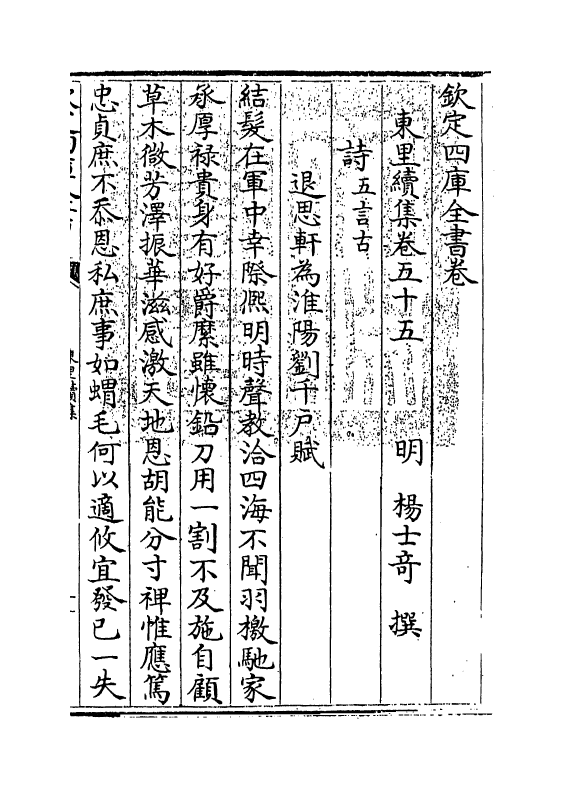 欽定四庫全書卷
東里續集卷五十五 明 楊士竒 撰
詩五言古
退思軒為淮陽劉千戶賦
結髮在軍中幸際熈明時聲教洽四海不聞羽檄馳家
承厚禄貴身有好爵縻雖懷鉛刀用一割不及施自顧
草木微芳澤振華滋感激天地恩胡能分寸裨惟應篤
忠貞庶不忝恩私庶事如蝟毛何以適攸宜發已一失
東里續集